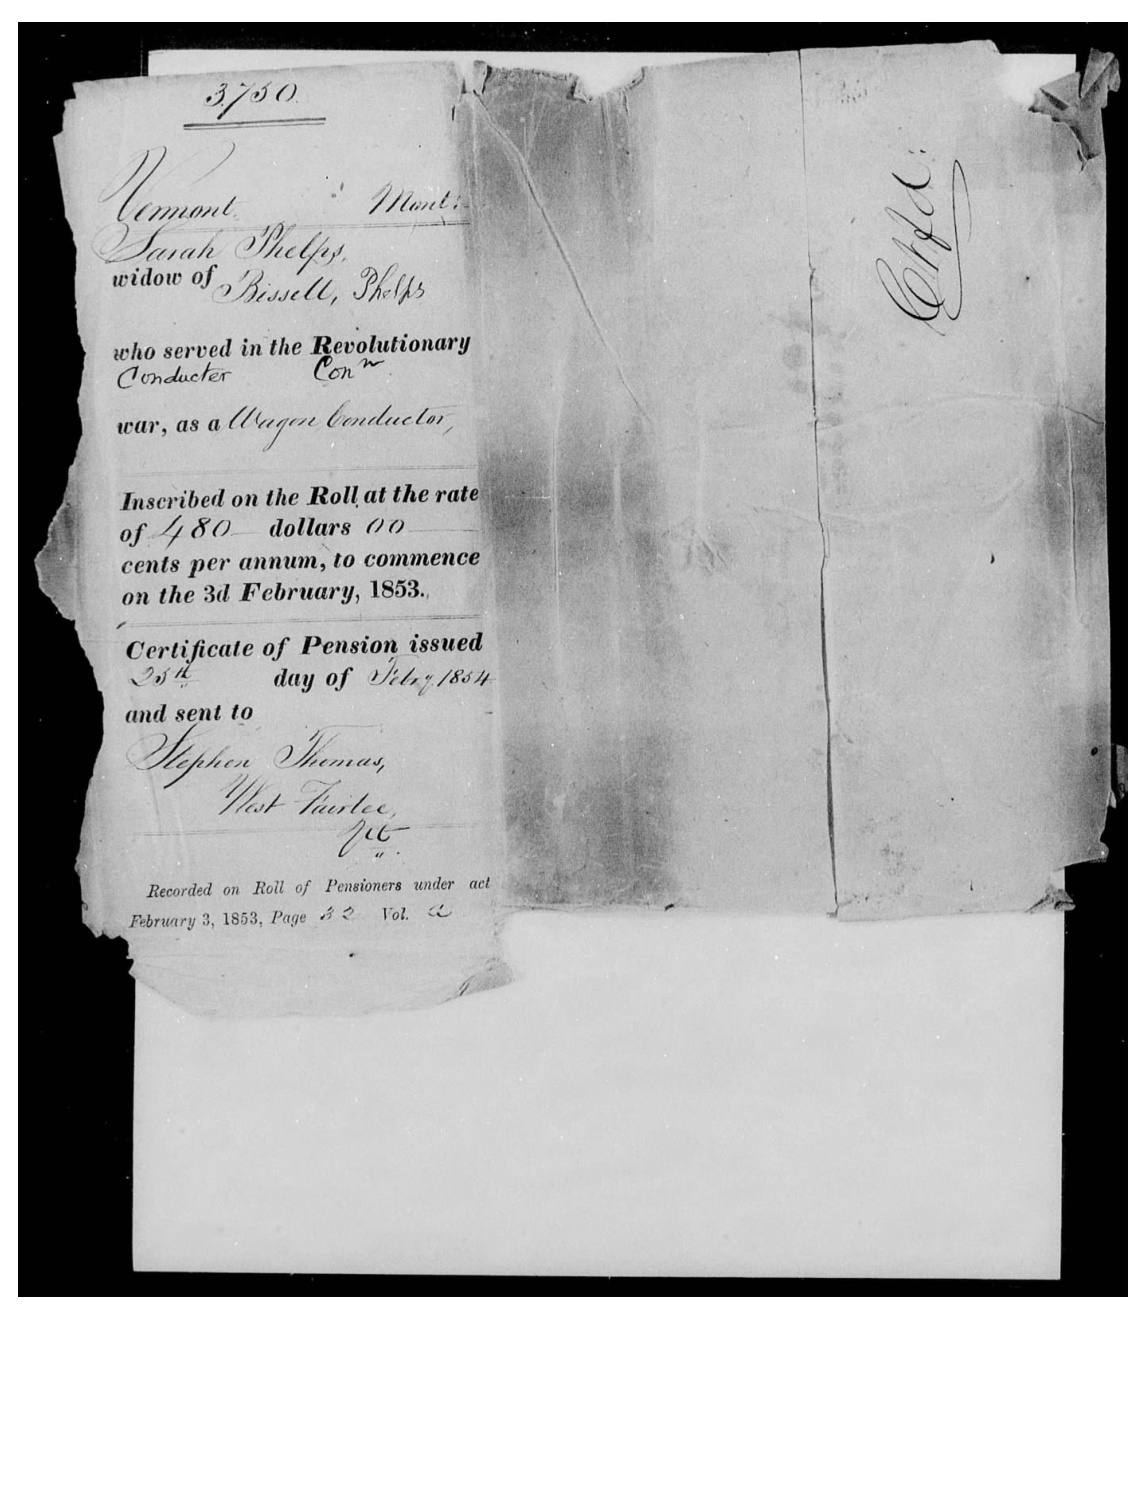 3750
Vermont. Mont:
Sarah Phelps,
widow of Bissell, Phelps
who served in the Revolutionary
Conducter Conn
war, as a Wagon Conductor,
Inscribed on the Roll at the rate
of 480 dollars 00
cents per annum, to commence
on the 3d February, 1853.
Certificate of Pension issued
25th day of Feby 1854
and sent to
Stephen Thomas,
West Fairlee,
Vt.
Recorded on Roll of Pensioners under act
February 3, 1853, Page 32 Vol. A